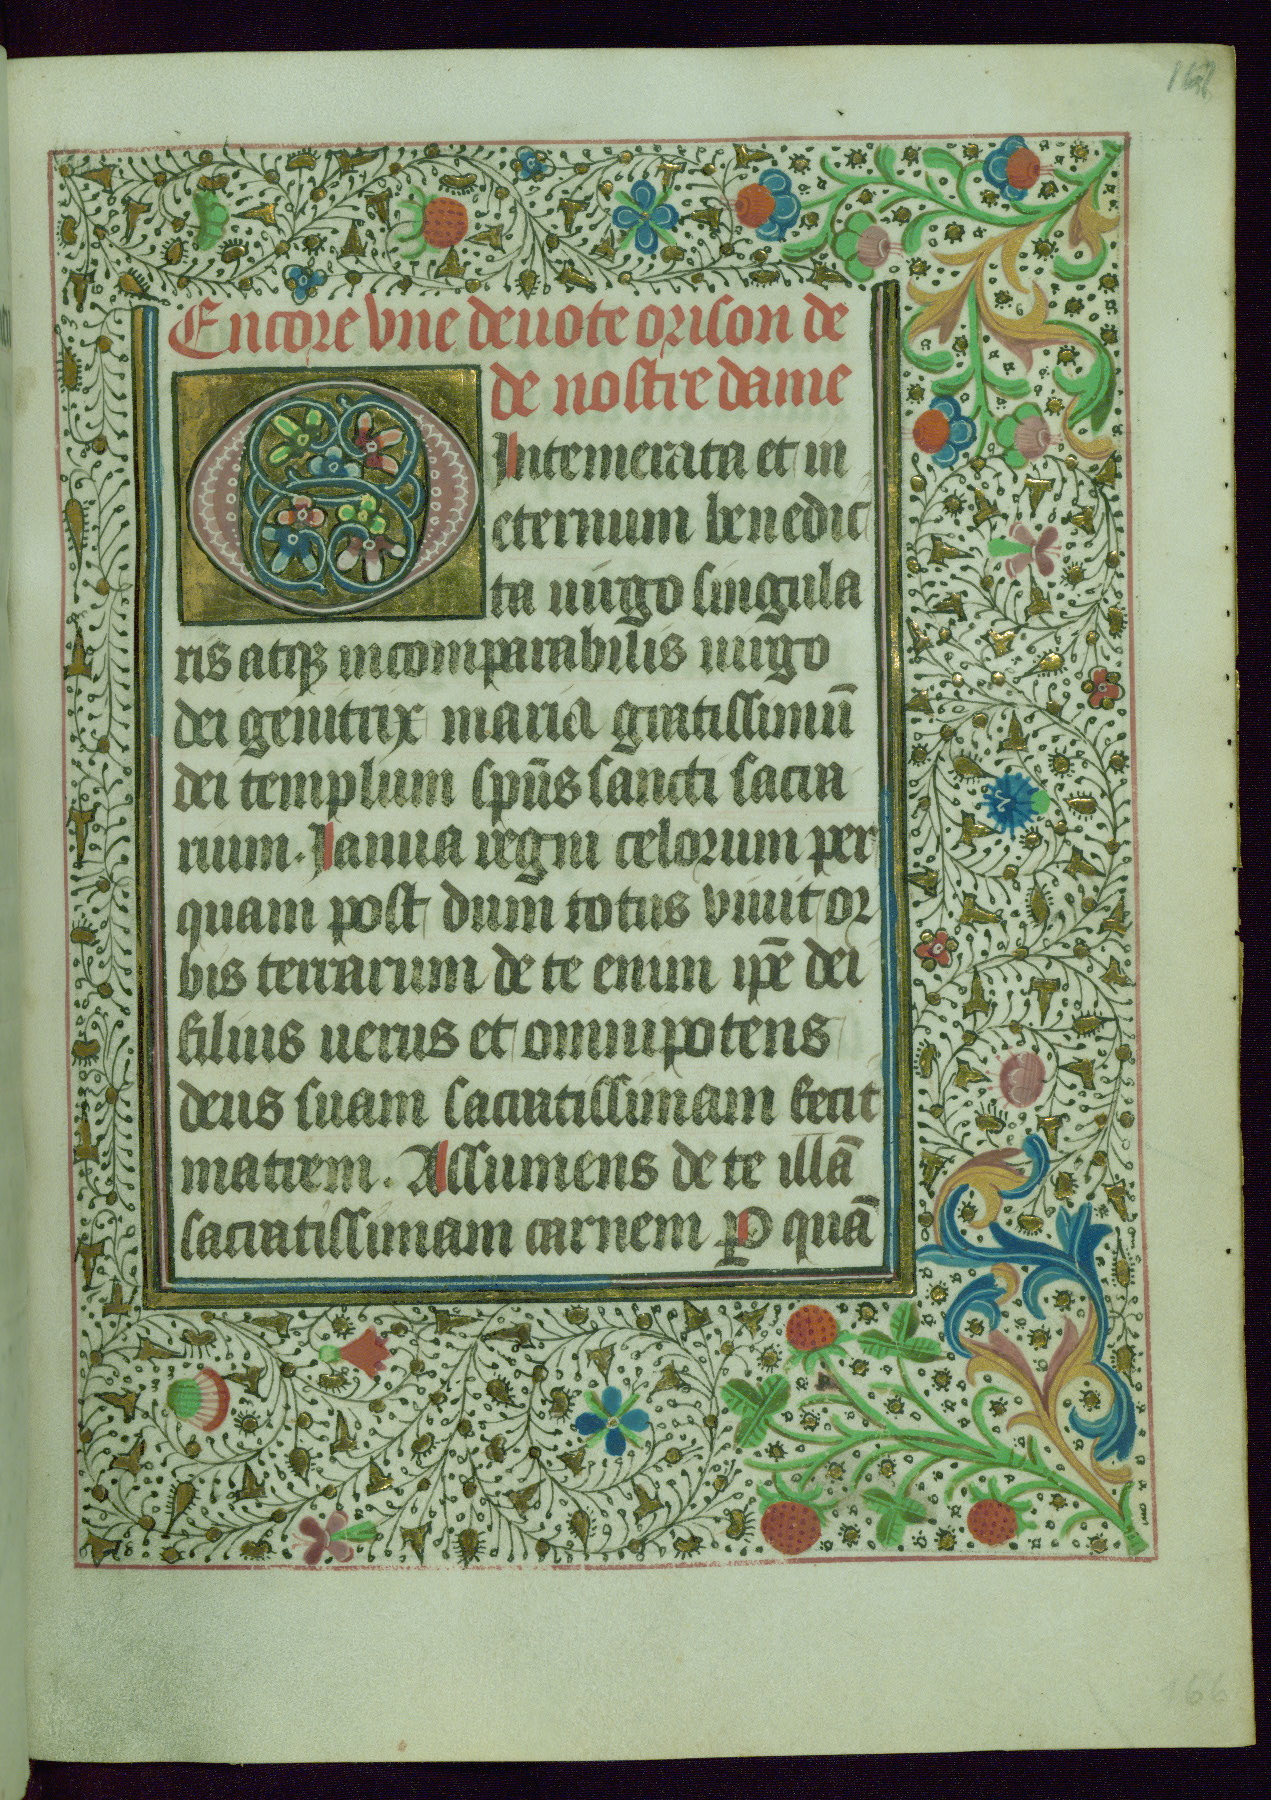 Encore vne deuote orison de
de nostre dame
O Intemerata et in
eternum benedic
ta uirgo singula
ris atqꝫ incomparabilis uirgo
dei genitrix maria gratissimū
dei templum spūs sancti sacra
rium. Ianua regni celorum per
quam post dum totus viuit or
bis terrarum de te enim ip̄e dei
filius uerus et omnipotens
deus suam sacratissimam fecit
matrem. Assumens de te illā
sacratissimam carnem ꝑ quā
166